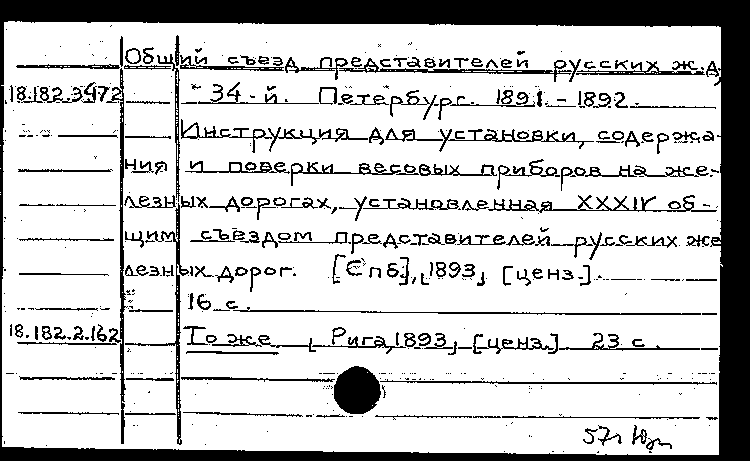 Общий съезд представителей русских ж.д,
18.182.3472 34-й. Петербург. 1891.-1892.
Инструкция для установки, содержа-
ния и поверки весовых приборов на же-
лезных дорогах, установленная XXXIV об-
щим съездом представителей русских же
лезных дорог. [Спб], 1893, [ценз.].
16 с.
18.182.2.162 То же, Рига, 1893, [ценз.] 23 с.
57г